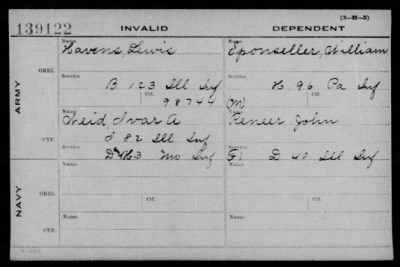 (3-H-5)
139122 INVALID DEPENDENT
Name Name
Havens, Lewis Sponseller, William
ORIG.
Service Service
B 123 Ill Inf H 96 Pa Inf
Ctf. Ctf.
98744 (M)
ARMY
Name Name
Weid, Ivar A Reneer, John
I 82 Ill Inf
CTF.
Service Service
Mo Inf D 40 Ill Inf
Name Name
ORIG.
Service Service
Ctf. Ctf.
NAVY
Name Name
CTF.